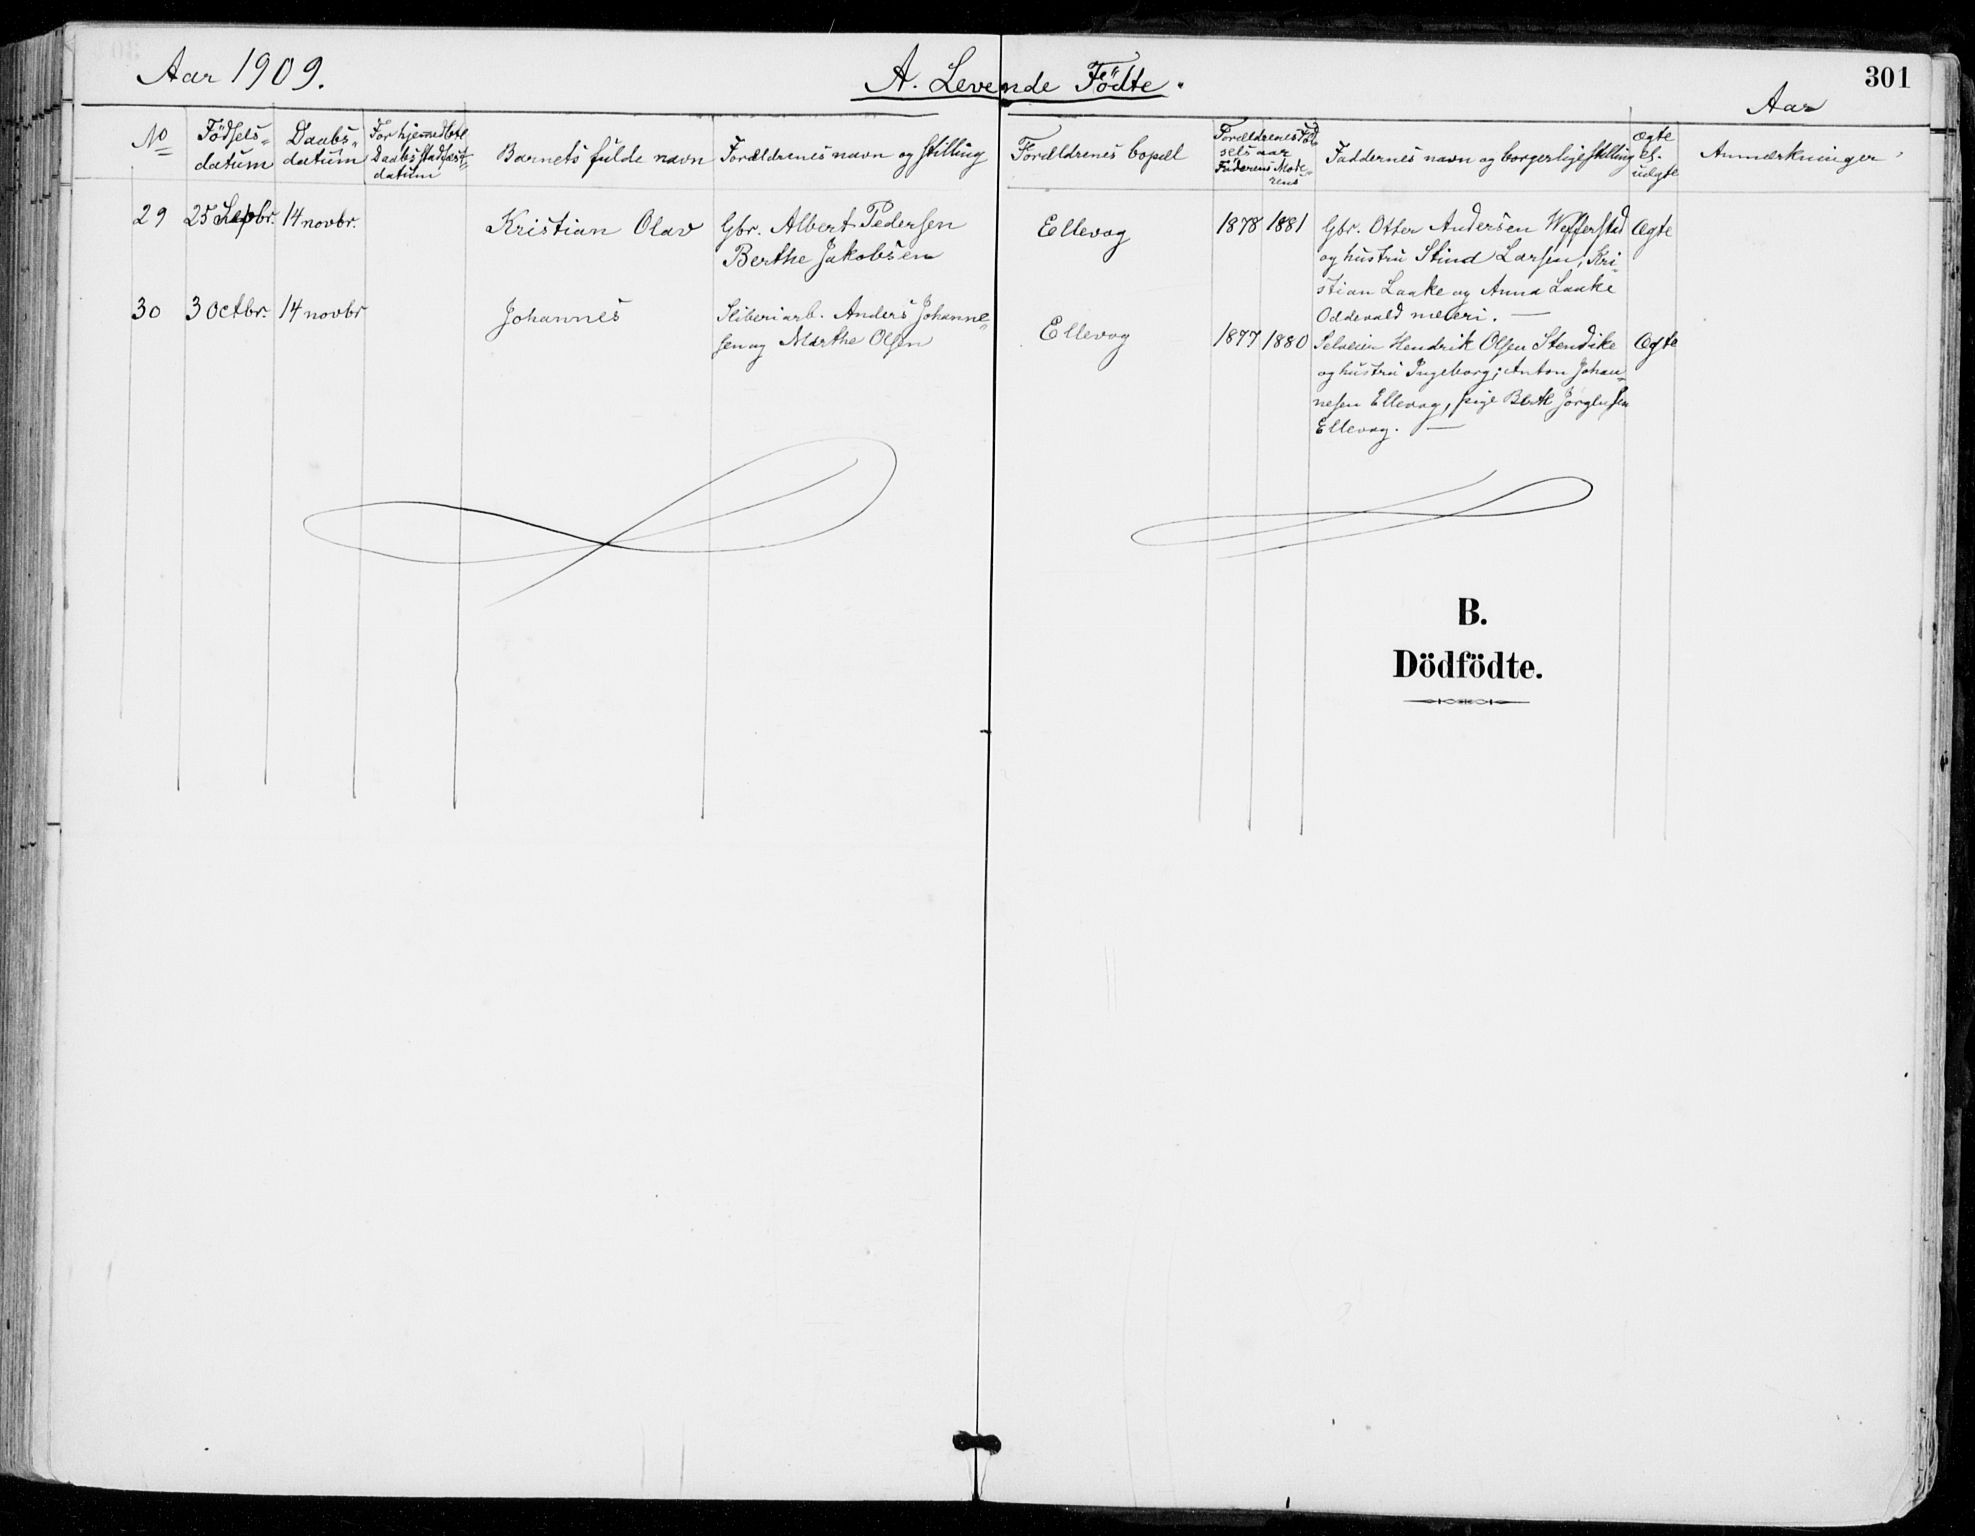 Aar 1909.
A. Levende Födte.
301
Aar
No
Födsels-
datum
Daabs-
datum
For hjemedöbte
Daabsstadfæst-
datum
Barnets fulde navn
Forældrenes navn og stilling
Forældrenes bopæl
Forældrenes Föd-
selsaar
Faderens Mode-
rens
Faddernes navn og borgerlige stilling
Ægte
el.
uægte
Anmærkninger
29 25 Sepbr. 14 novbr. Kristian Olav Gbr. Albert Pedersen
Berthe Jakobsen
Ellevog 1878 1881 Gbr. Otter Andersen Ægte
og hustru Larsen, Kri-
stian Laake og Anna Laake
Oddevald meieri. —
30 3 Octbr. 14 novbr Johannes Sliberiarb. Anders Johanne-
sen og Marthe Olsen
Ellevog 1877 1880 Selveier Hendrik Olsen Stendike Ægte
og hustru Ingeborg, Anton Johan-
nesen Ellevog, pige
Ellevog. —
B.
Dödfödte.